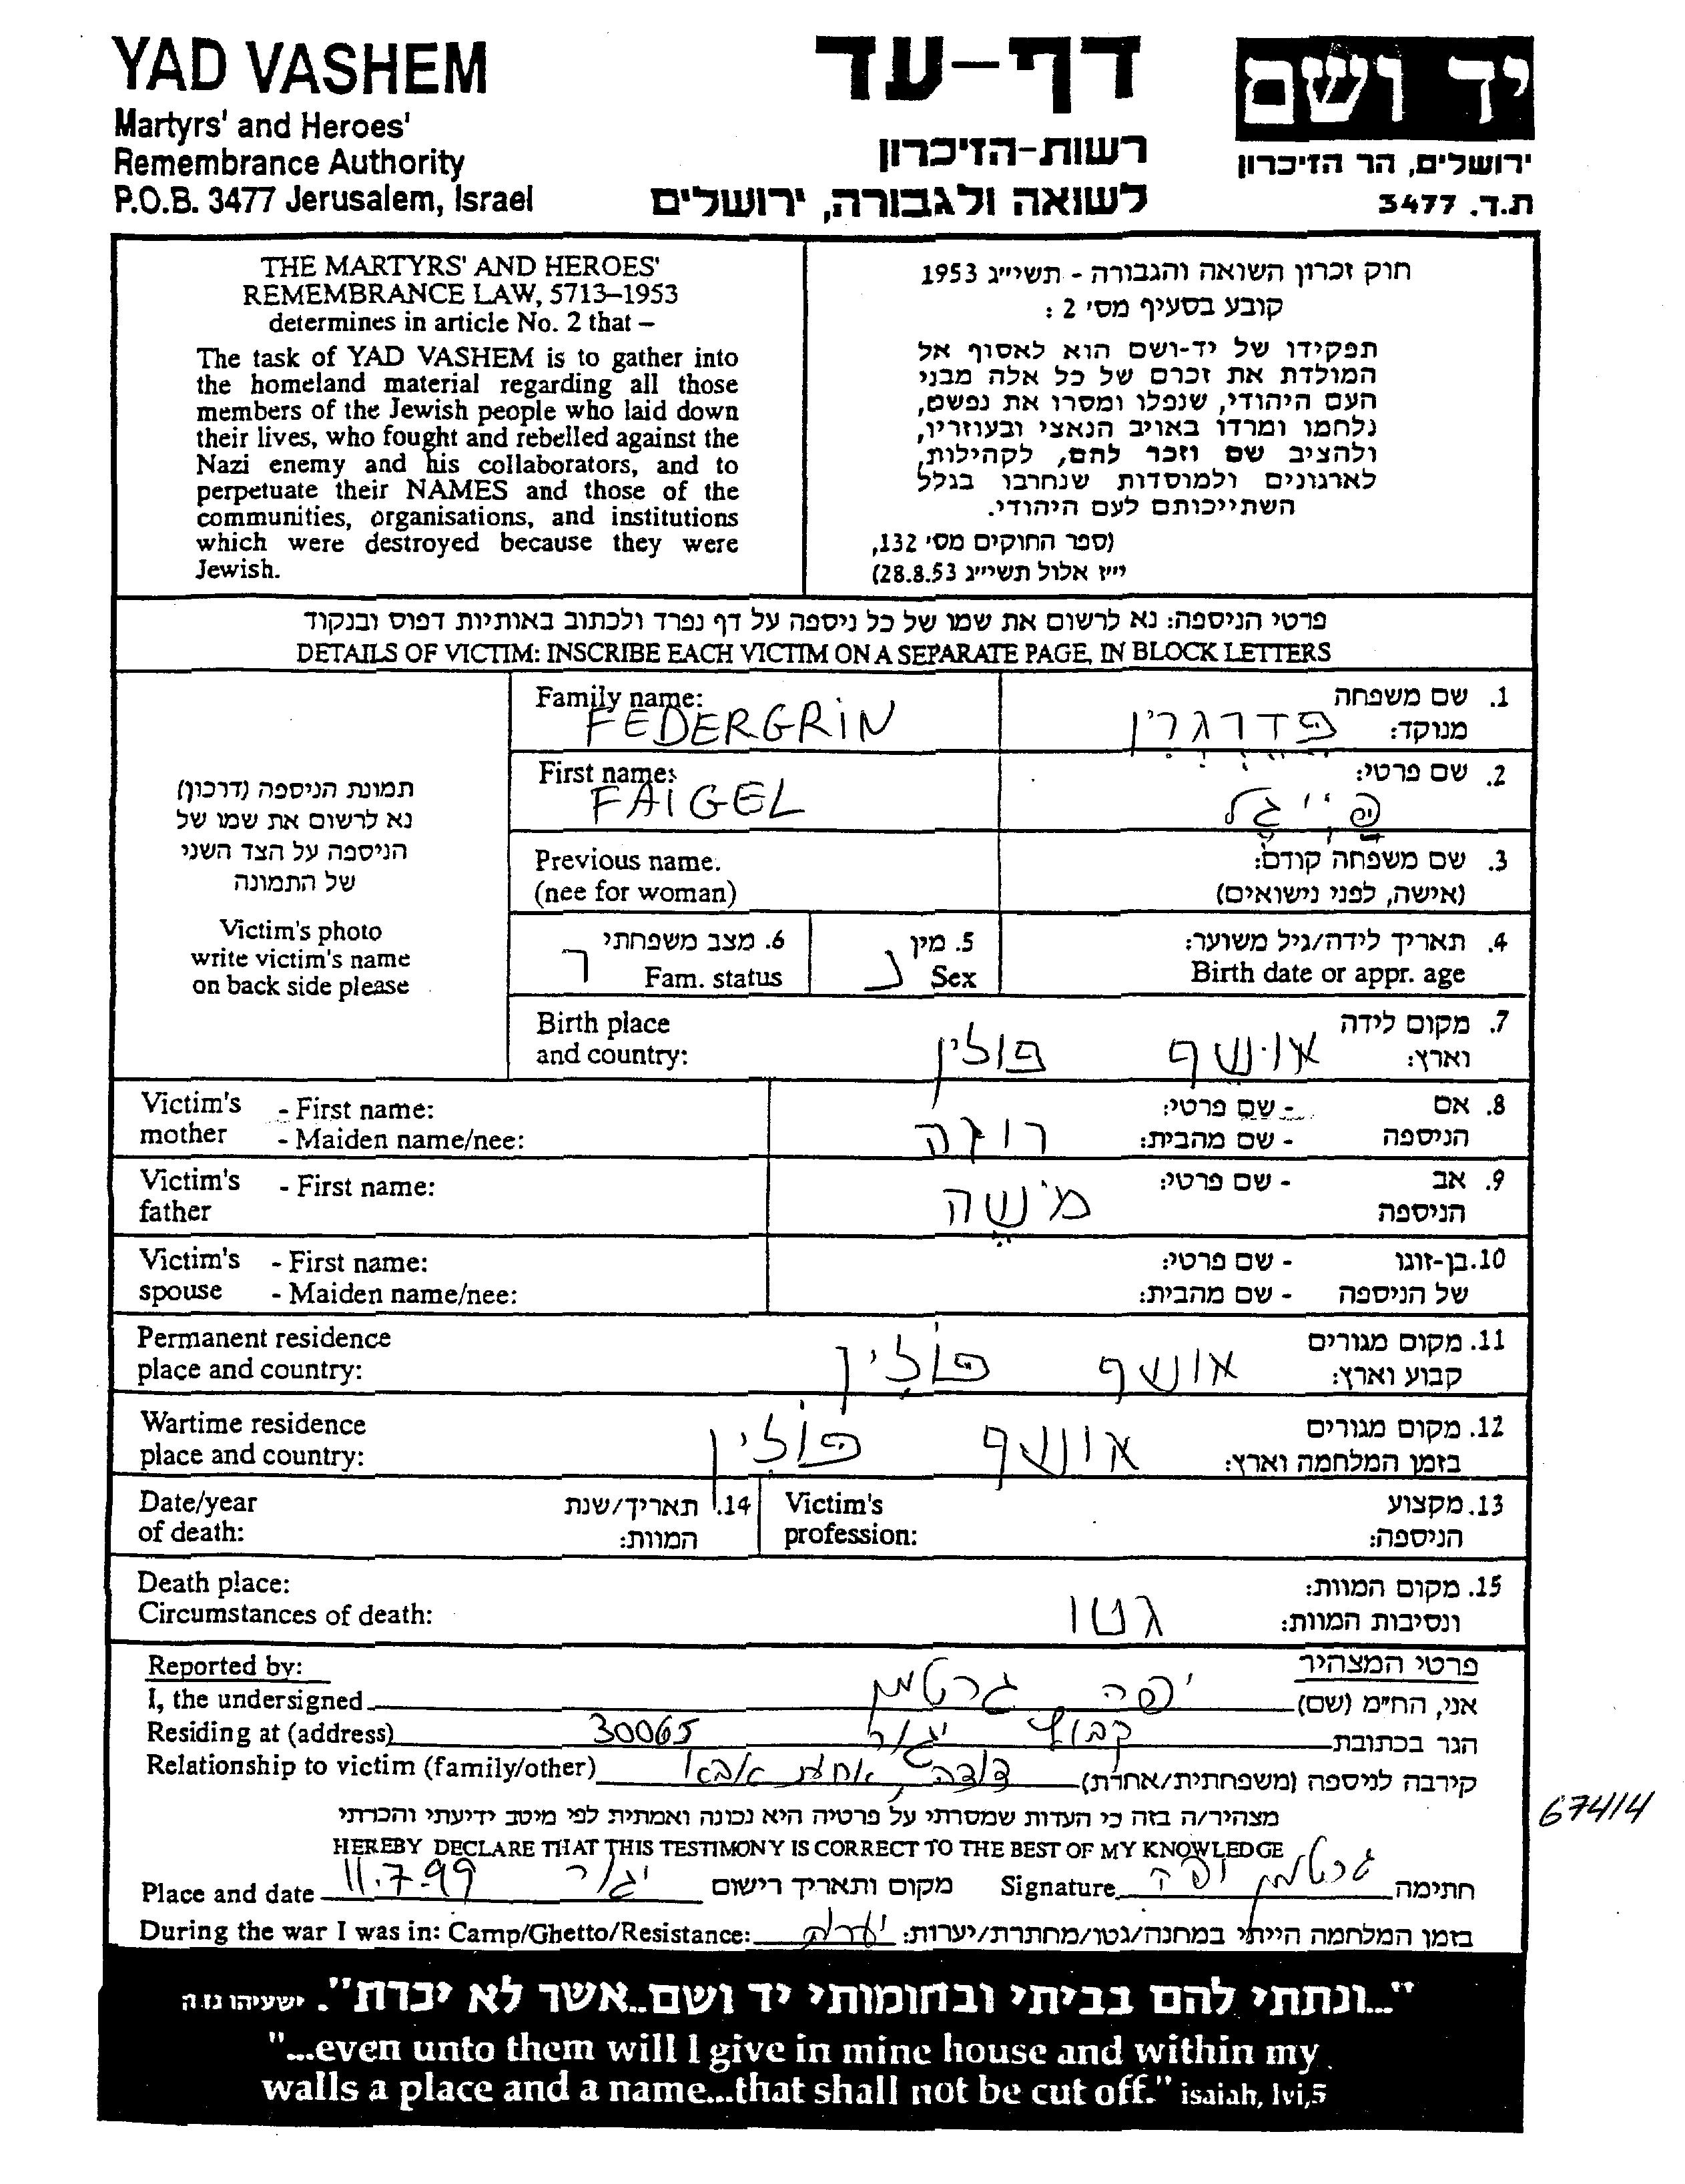 YAD VASHEM
Martyrs' and Heroes'
Remembrance Authority
P.O.B. 3477 Jerusalem, Israel
דף-עד
רשות-הזיכרון
לשואה ולגבורה, ירושלים
יד ושם
ירושלים, הר הזיכרון
ת.ד. 3477
THE MARTYRS' AND HEROES'
REMEMBRANCE LAW, 5713–1953
determines in article No. 2 that –
The task of YAD VASHEM is to gather into
the homeland material regarding all those
members of the Jewish people who laid down
their lives, who fought and rebelled against the
Nazi enemy and his collaborators, and to
perpetuate their NAMES and those of the
communities, organisations, and institutions
which were destroyed because they were
Jewish.
חוק זכרון השואה והגבורה - תשי״ג 1953
קובע בסעיף מס׳ 2 :
תפקידו של יד-ושם הוא לאסוף אל
המולדת את זכרם של כל אלה מבני
העם היהודי, שנפלו ומסרו את נפשם,
נלחמו ומרדו באויב הנאצי ובעוזריו,
ולהציב שם וזכר להם, לקהילות,
לארגונים ולמוסדות שנחרבו בגלל
השתייכותם לעם היהודי.
(ספר החוקים מס׳ 132,
י״ז אלול תשי״ג 28.8.53)
פרטי הניספה: נא לרשום את שמו של כל ניספה על דף נפרד ולכתוב באותיות דפוס ובנקוד
DETAILS OF VICTIM: INSCRIBE EACH VICTIM ON A SEPARATE PAGE, IN BLOCK LETTERS
תמונת הניספה (דרכון)
נא לרשום את שמו של
הניספה על הצד השני
של התמונה
Victim's photo
write victim's name
on back side please
Family name: 1. שם משפחה
FEDERGRIN פדרגרין מנוקד:
First name: 2. שם פרטי:
FAIGEL פייגל
Previous name. 3. שם משפחה קודם:
(nee for woman) (אישה, לפני נישואים)
6. מצב משפחתי ר 5. מין נ 4. תאריך לידה/גיל משוער:
Fam. status Sex Birth date or appr. age
Birth place 7. מקום לידה
and country: אושף פולין וארץ:
Victim's - First name: - שם פרטי: 8. אם
mother - Maiden name/nee: רוזה - שם מהבית: הניספה
Victim's - First name: - שם פרטי: 9. אב
father משה הניספה
Victim's - First name: - שם פרטי: 10. בן-זוגו
spouse - Maiden name/nee: - שם מהבית: של הניספה
Permanent residence 11. מקום מגורים
place and country: אושף פולין קבוע וארץ:
Wartime residence 12. מקום מגורים
place and country: אושף פולין בזמן המלחמה וארץ:
Date/year 14. תאריך/שנת Victim's 13. מקצוע
of death: המוות: profession: הניספה:
Death place: 15. מקום המוות:
Circumstances of death: גטו ונסיבות המוות:
Reported by: פרטי המצהיר
I, the undersigned יפה גרטמן אני, הח״מ (שם)
Residing at (address) 30065 קבוץ יגור הגר בכתובת
Relationship to victim (family/other) דודה, אחות אבא קירבה לניספה (משפחתית/אחרת)-
מצהיר/ה בזה כי העדות שמסרתי על פרטיה היא נכונה ואמתית לפי מיטב ידיעתי והכרתי
67414
HEREBY DECLARE THAT THIS TESTIMONY IS CORRECT TO THE BEST OF MY KNOWLEDGE
Place and date 11.7.99 יגור מקום ותאריך רישום Signature גרטמן יפה חתימה
During the war I was in: Camp/Ghetto/Resistance: בזמן המלחמה הייתי במחנה/גטו/מחתרת/יערות:
"...ונתתי להם בביתי ובחומותי יד ושם..אשר לא יכרת". ישעיהו נו.ה
"...even unto them will I give in mine house and within my
walls a place and a name...that shall not be cut off." isaiah, lvi,5